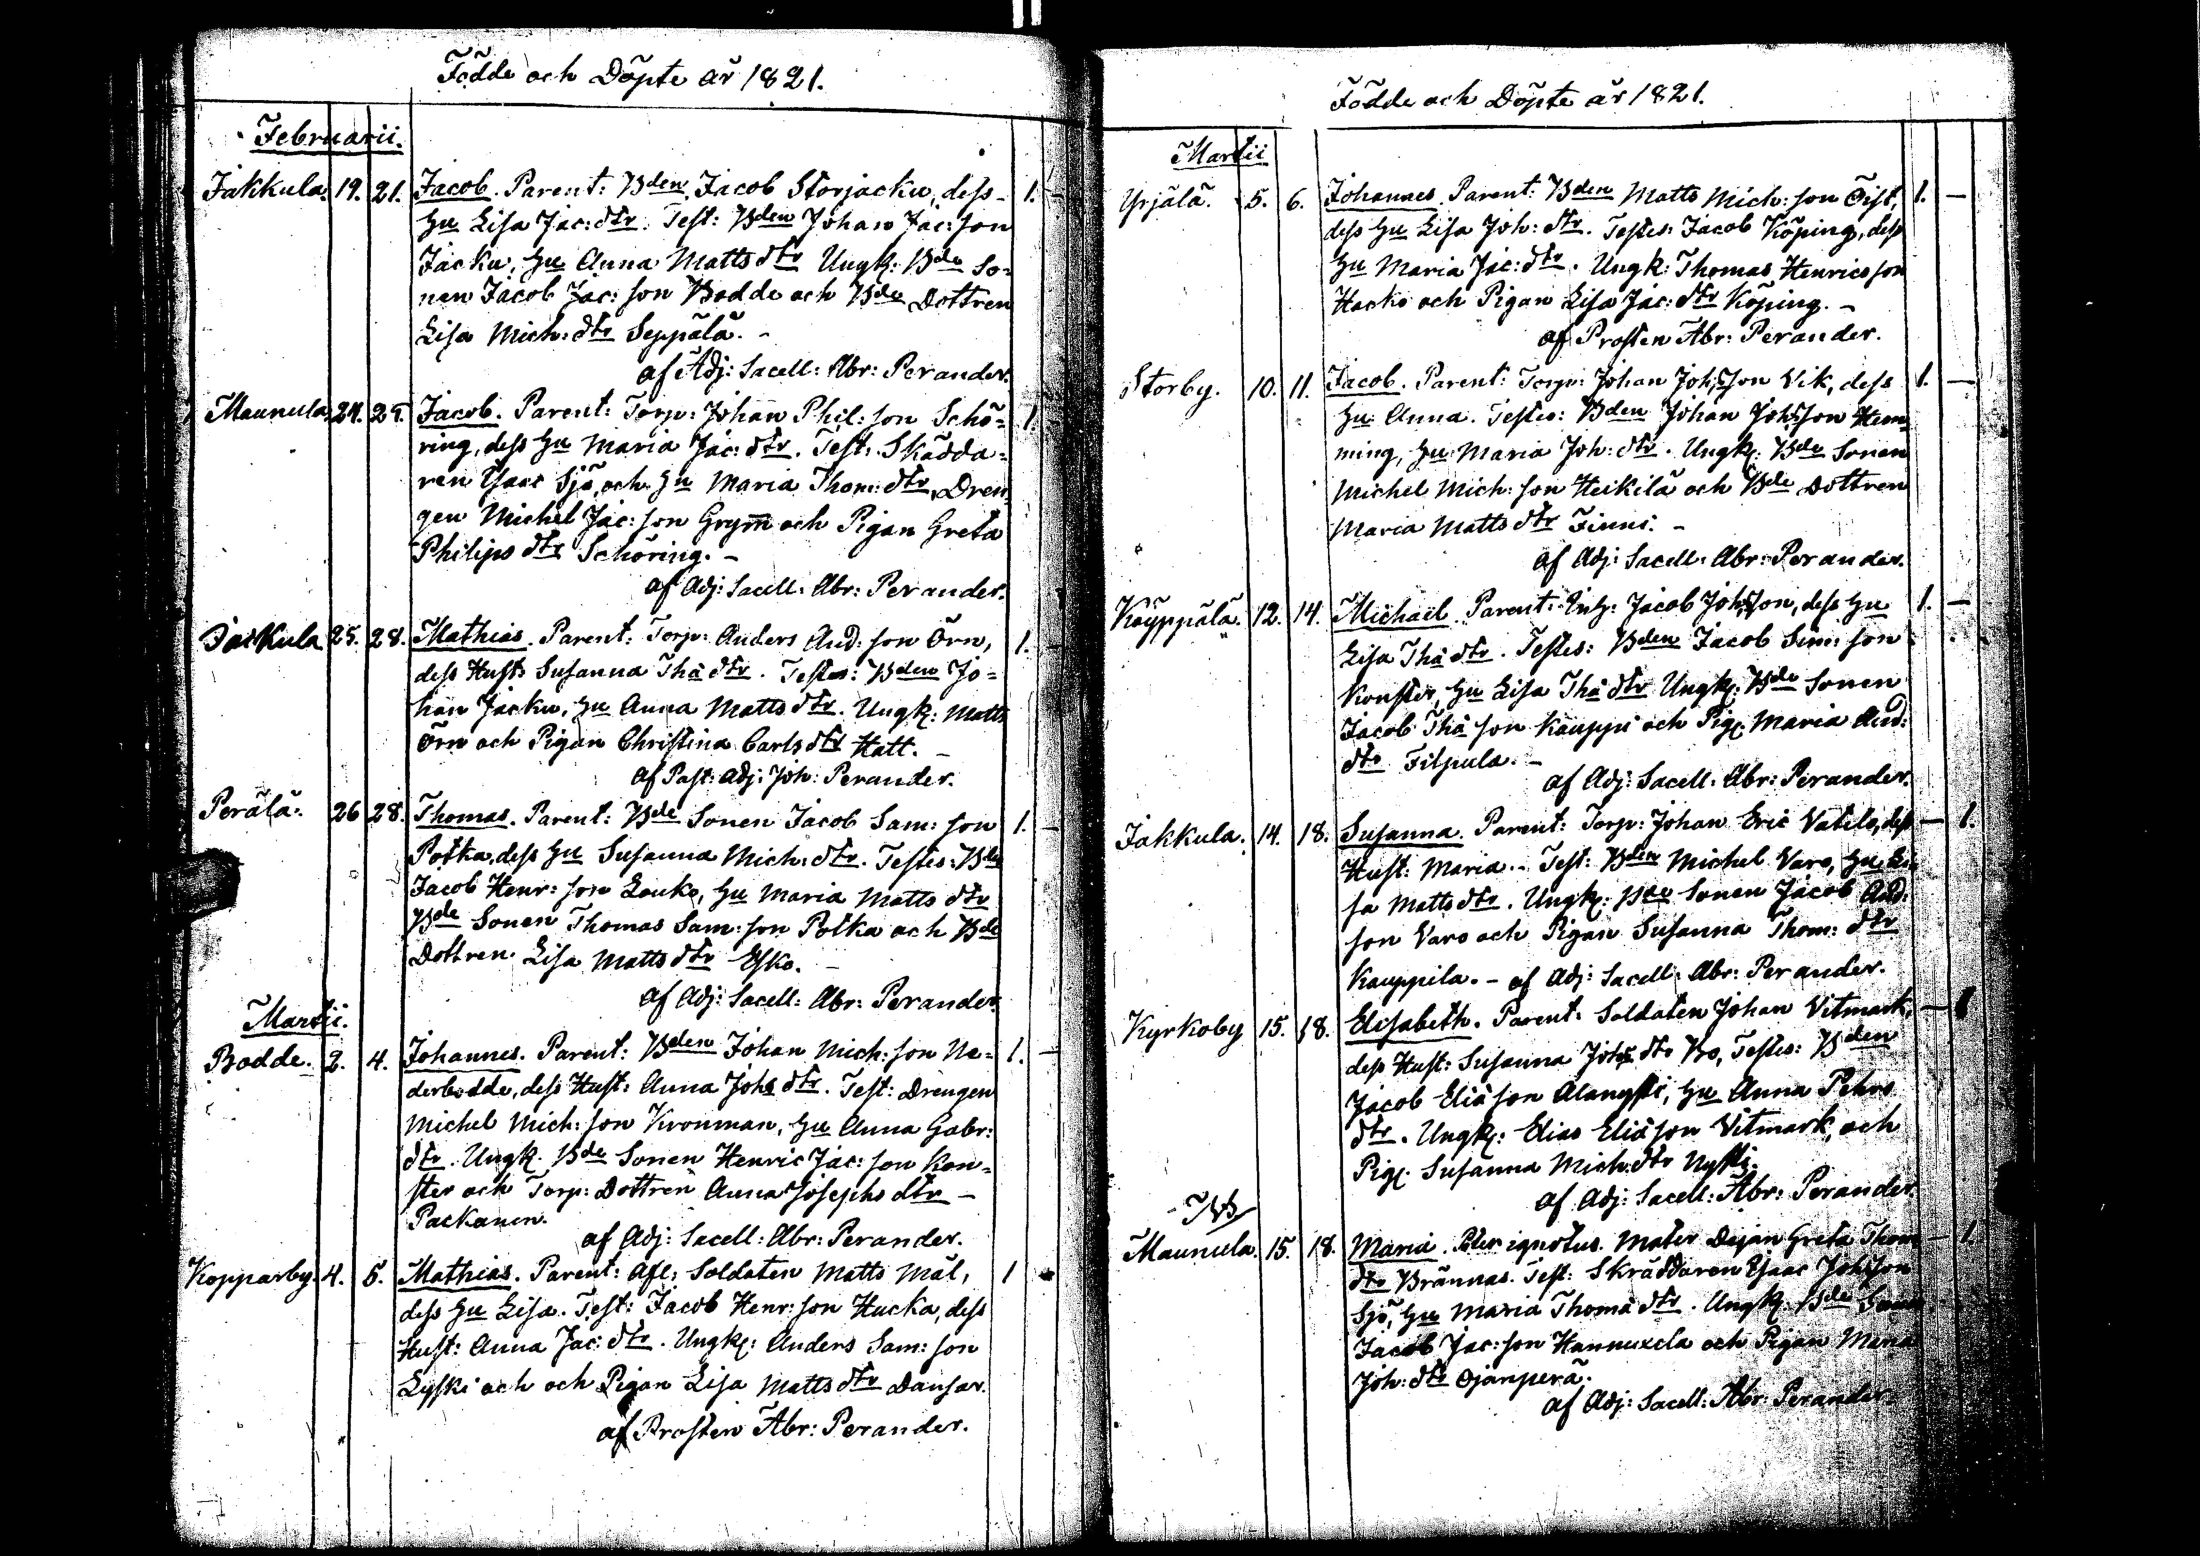 Födde och Döpte år 1821.
Februarii.
Jakkula. 19. 21. Jacob. Parent: Bden Jacob Storjacku, dess 1. -
Hu Lisa Jac: dtr. Test: Bden Johan Jac: son
Jacku, Hu Anna Matts dtr Ungk: Bde So=
nen Jacob Jac: son Bodde och Bde Dottren
Lisa Mich: dtr Seppälä. -
af Adj: Sacell: Abr: Perander.
Maunula. 24. 25. Jacob. Parent: Torp: Johan Phil: son Schö= 1.
ring, dess Hu Maria Jac: dtr. Test: Skädda=
ren Isaac Sjö, och Hu Maria Thom: dtr, Dren
gen Michel Jac: son Grym och Pigan Greta
Philips dtr Schöring. -
af Adj: Sacell: Abr: Perander.
Jackula 25. 28. Mathias. Parent: Torp: Anders And: son Örn, 1. -
dess Hustr Susanna Thä dtr. Testes: Bden Jo=
han Jacku, Hu Anna Matts dtr. Ungk: Matts
Örn och Pigan Christina Carls dtr Hatt. -
af Past: Adj: Joh: Perander.
Perälä. 26 28. Thomas. Parent: Bde Sonen Jacob Sam: son 1. -
Potka, dess Hu Susanna Mich: dtr. Testes: Bden
Jacob Henr: son Louko, Hu Maria Matts dtr
Bde Sonen Thomas Sam: son Potka och Bde
Dottren Lisa Matts dtr Esko. -
af Adj: Sacell: Abr: Perander.
Martii.
Bodde. 2. 4. Johannes. Parent: Bden Johan Mich: son Ne= 1. -
derbodde, dess Hust: Anna Johs dtr. Test: Drengen
Michel Mich: son Kronman, Hu Anna Gabr:
dtr. Ungk. Bde Sonen Henric Jac: son Kon=
ster och Torp: Dottren Anna Josephs dtr -
Packanen.
af Adj: Sacell: Abr: Perander.
Kopparby. 4. 5. Mathias. Parent: Afl: Soldaten Matts Mål, 1 -
dess Hu Lisa. Test: Jacob Henr: son Hucka, dess
Hust: Anna Jac: dtr. Ungk: Anders Sam: son
Lyski och och Pigan Lisa Matts dtr Dansar.
af Prosten Abr: Perander.
Födde och Döpte år 1821.
Martii
Yrjälä. 5. 6. Johannes. Parent: Bden Matts Mich: son Öist, 1. -
dess Hu Lisa Joh: dtr. Testes: Jacob Köping, dess
Hu Maria Jac: dtr. Ungk: Thomas Henricsson
Hacko och Pigan Lisa Jac: dtr Köping. -
af Prosten Abr: Perander.
Storby. 10. 11. Jacob. Parent: Torp: Johan Joh: Son Vik, dess 1. -
Hu Anna. Testes: Bden Johan Johsson Hem=
ming, Hu Maria Joh: dtr. Ungk: Bde Sonen
Michel Mich: son Heikilä och Bde Dottren
Maria Matts dtr Finni. -
af Adj: Sacell: Abr: Perander.
Köyppälä. 12. 14. Michaël. Parent: Inh: Jacob Johsson, dess Hu 1. -
Lisa Thä dtr. Testes: Bden Jacob Sim: son
Konster, Hu Lisa Thä dtr Ungk: Bde Sonen
Jacob Thä son Kauppi och Pig. Maria And:
dtr Filpula. -
af Adj: Sacell: Abr: Perander.
Jakkula. 14. 18. Susanna. Parent: Torp: Johan Eric Vatilo, dess - 1.
Hust: Maria. - Test: Bden Michel Varo, Hu Li=
sa Matts dtr. Ungk: Bde Sonen Jacob And:
son Varo och Pigan Susanna Thom: dtr
Kauppila. - af Adj: Sacell: Abr: Perander.
Kyrkoby 15. 18. Elisabeth. Parent: Soldaten Johan Vitmark, - 1
dess Hust: Susanna Johs dtr Bo, Testes: Bden
Jacob Eliä son Alangsti, Hu Anna Pehrs
dtr. Ungk: Elias Eliä son Vitmark, och
Pig. Susanna Mich: dtr Nysti.
af Adj: Sacell: Abr: Perander
Maunula. 15. 18. Maria. Pater ignotus. Mater Dejan Greta Thom - 1.
dtr Brännas. Test: Skräddaren Esaac Johsson
Sjö, Hu Maria Thomä dtr. Ungk. Bde Sonen
Jacob Jac: son Hannuxela och Pigan Maria
Joh: dtr Ojanperä.
af Adj: Sacell: Abr: Perander.